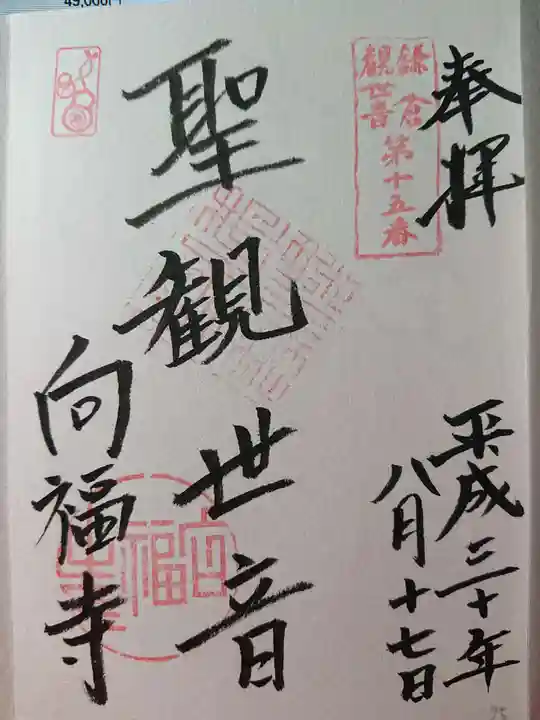 49,000円
奉拝
鎌倉
観世音
第十五番
平成三十年
八月十七日
聖観世音
向福寺